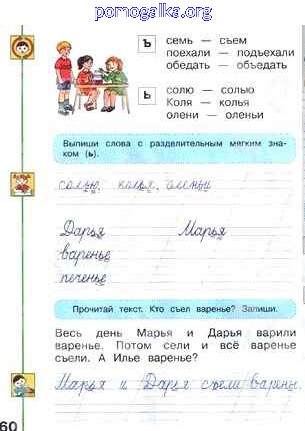 pomogalka.org
ъ
семь — съем
поехали — подъехали
обедать — объедать
ь
солю — солью
Коля — колья
олени — оленьи
Выпиши слова с разделительным мягким зна-
ком (ь).
солью, колья, оленьи
Дарья Марья
варенье
печенье
Прочитай текст. Кто съел варенье? Запиши.
Весь день Марья и Дарья варили
варенье. Потом сели и всё варенье
съели. А Илье варенье?
Марья и Дарья съели варенье.
60